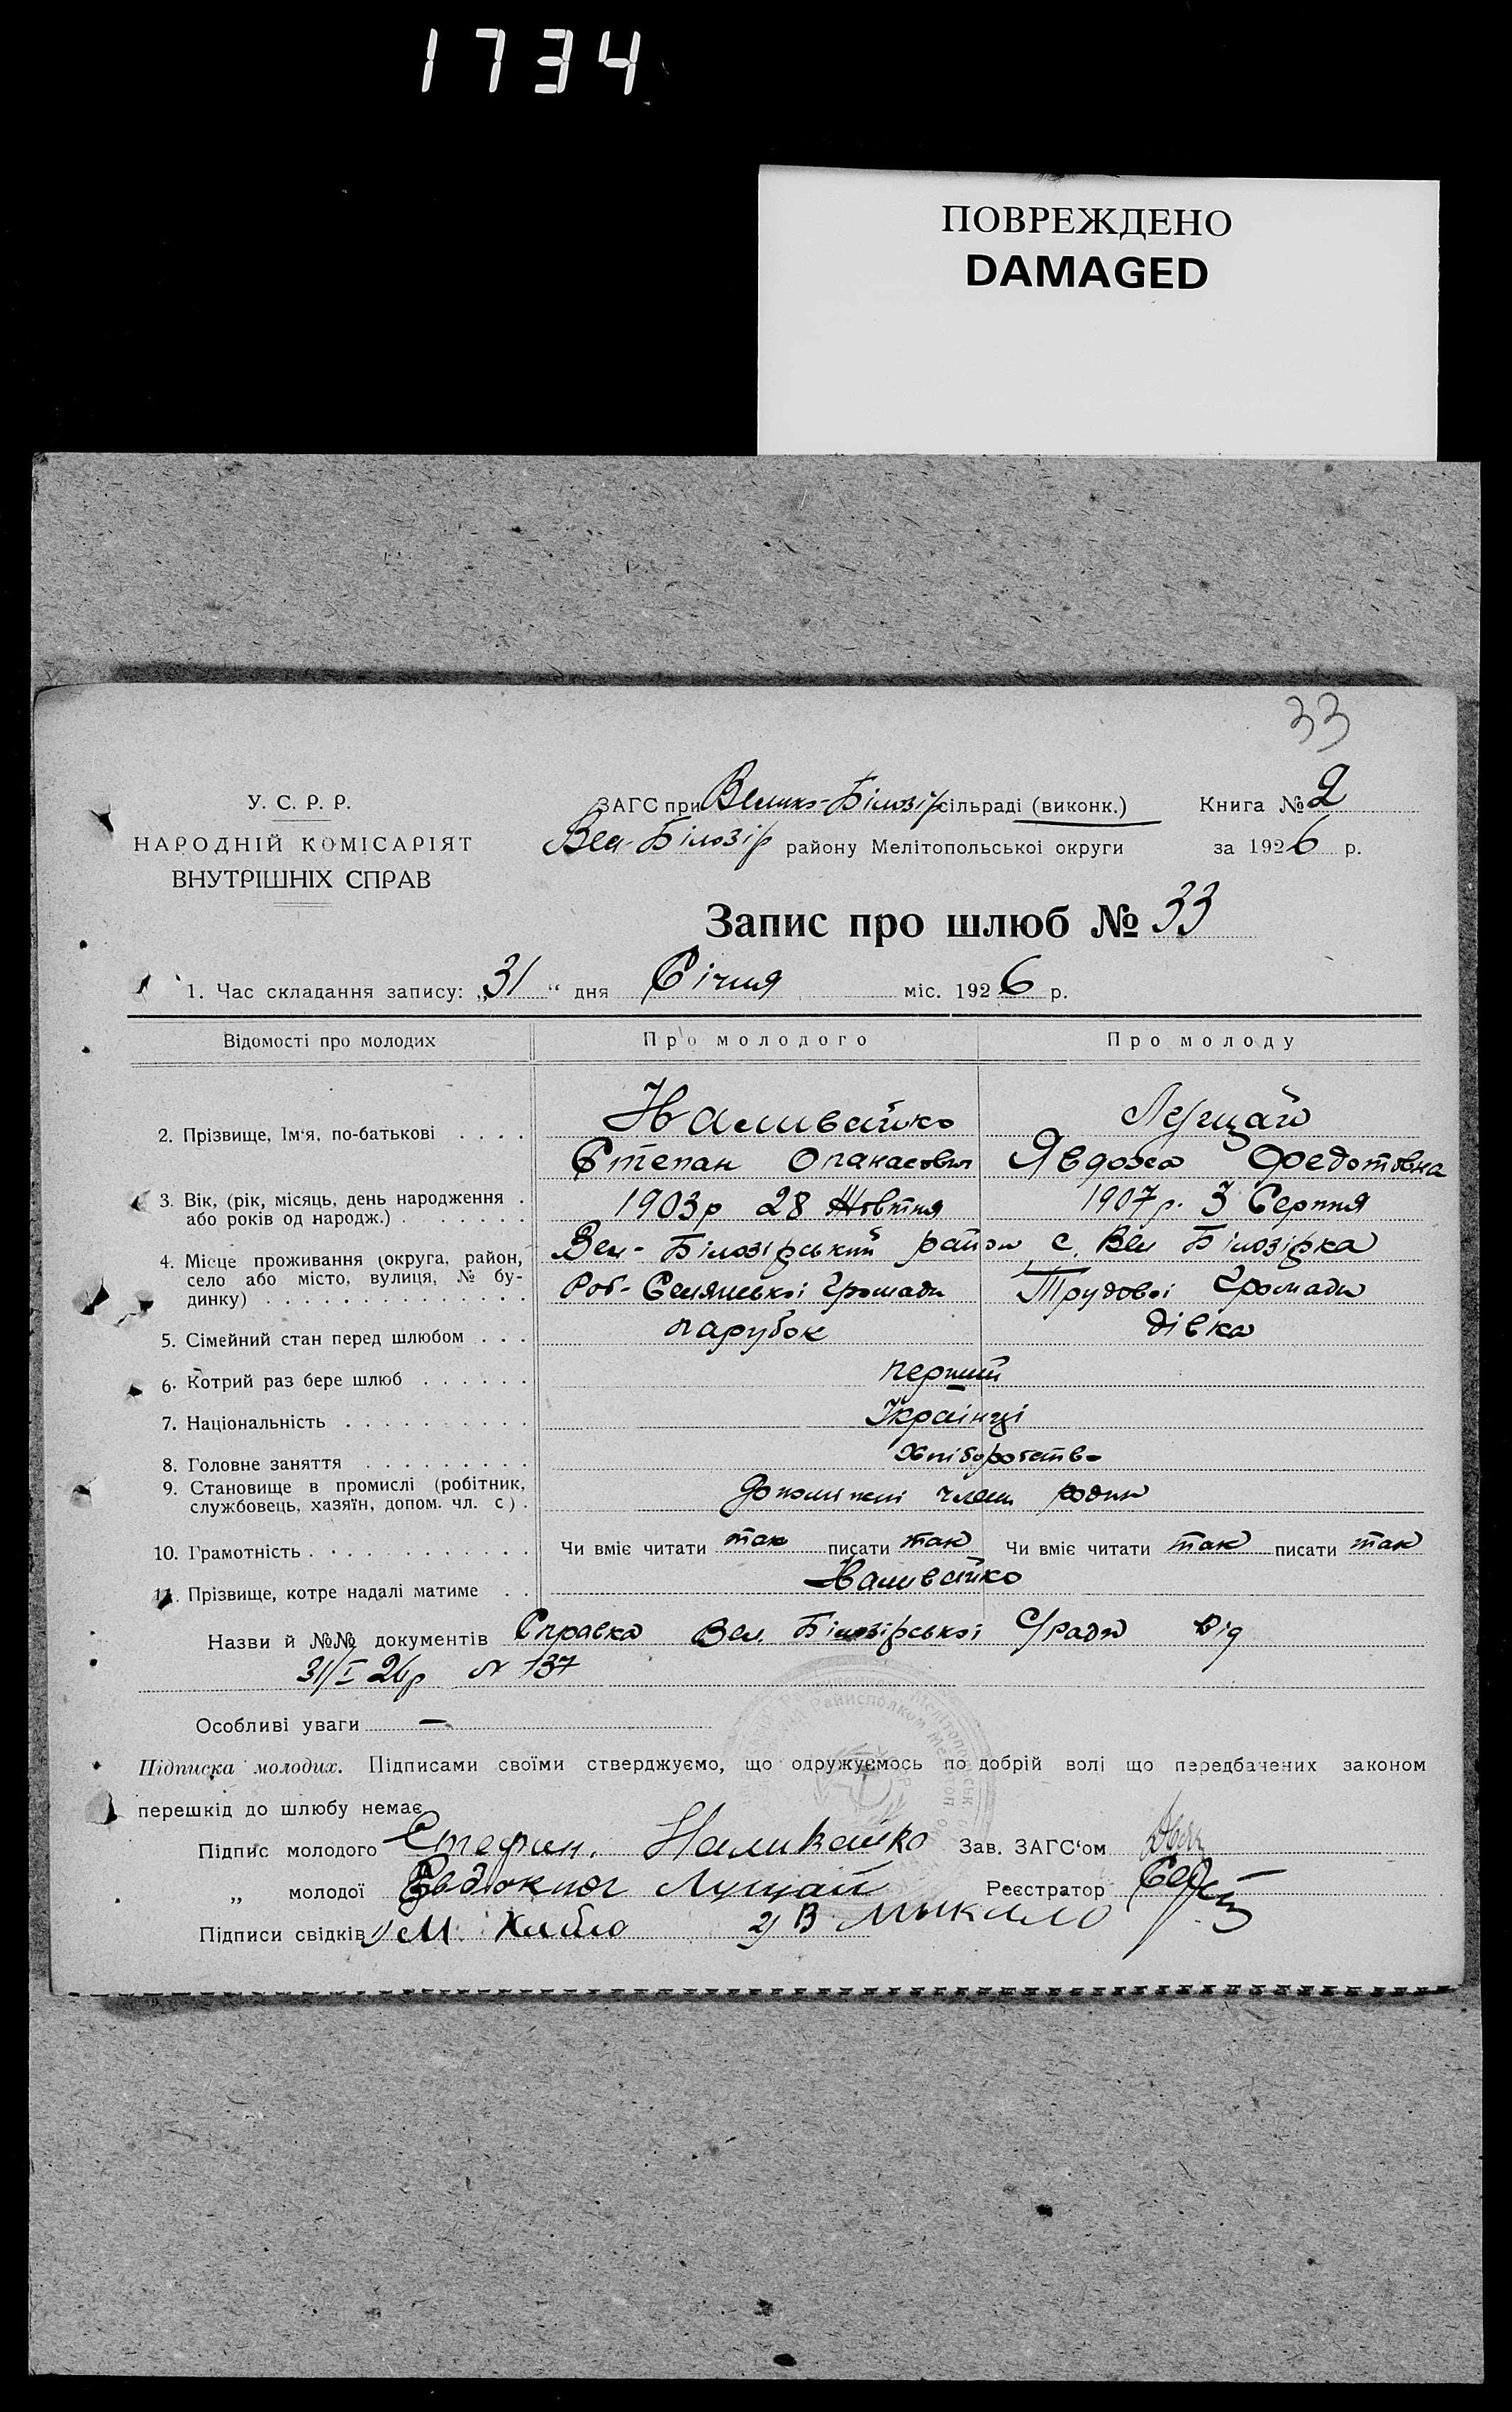 1734
ПОВРЕЖДЕНО
DAMAGED
33
У. С. Р. Р.
НАРОДНІЙ КОМІСАРІЯТ
ВНУТРІШНІХ СПРАВ
ЗАГС при Велико-Білозір сільраді (виконк.) Книга № 2
Вел-Білозір району Мелітопольської округи за 1926 р.
Запис про шлюб № 33
1. Час складання запису: „31“ дня Січня міс. 1926 р.
Відомості про молодих Про молодого Про молоду
2. Прізвище, Ім'я, по-батькові . . . . Наливайко Лущай
Степан Опанасович Явдоха Федотовна
3. Вік, (рік, місяць, день народження . 1903р 28 Жовтня 1907 р. 3 Серпня
або років од народж.) . . . . . . .
4. Місце проживання (округа, район, Вел-Білозірський район с. Вел Білозірка
село або місто, вулиця, № бу-
динку) . . . . . . . . . . . . . Роб-Селянської Громади Трудової Громади
5. Сімейний стан перед шлюбом . . . парубок дівка
6. Котрий раз бере шлюб . . . . . . перший
7. Національність . . . . . . . . . . Українці
8. Головне заняття . . . . . . . . . Хліборобство
9. Становище в промислі (робітник,
службовець, хазяїн, допом. чл. с) . члени родин
10. Грамотність . . . . . . . . . . . . Чи вміє читати так писати так Чи вміє читати так писати так
11. Прізвище, котре надалі матиме . . Наливайко
Назви й №№ документів Справка Вел. Білозірської С/ради від
31/I 26р № 137
Особливі уваги —
Підписка молодих. Підписами своїми стверджуємо, що одружуємось по добрій волі що передбачених законом
перешкід до шлюбу немає
Підпис молодого Стефан. Наливайко Зав. ЗАГС'ом
„ молодої Лущай Реєстратор
Підписи свідків 1) М. 2) В